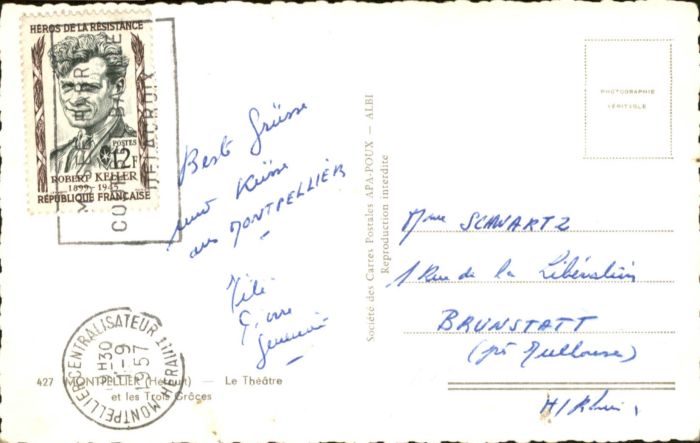 HÉROS DE LA RÉSISTANCE
POSTES
12F
ROBERT KELLER
1899 - 1945
RÉPUBLIQUE FRANÇAISE
DELACROIX
Beste Grüsse
und Küsse
aus MONTPELLIER
Pierre
MONTPELLIER CENTRALISATEUR
HERAULT
H30
-9
1957
427 MONTPELLIER (Hérault) — Le Théâtre
et les Trois Grâces
Société des Cartes Postales APA-POUX — ALBI
Reproduction interdite
PHOTOGRAPHIE
VÉRITABLE
Mme SCHWARTZ
1 Rue de la Libération
BRUNSTATT
(près Mulhouse)
H/Rhin.